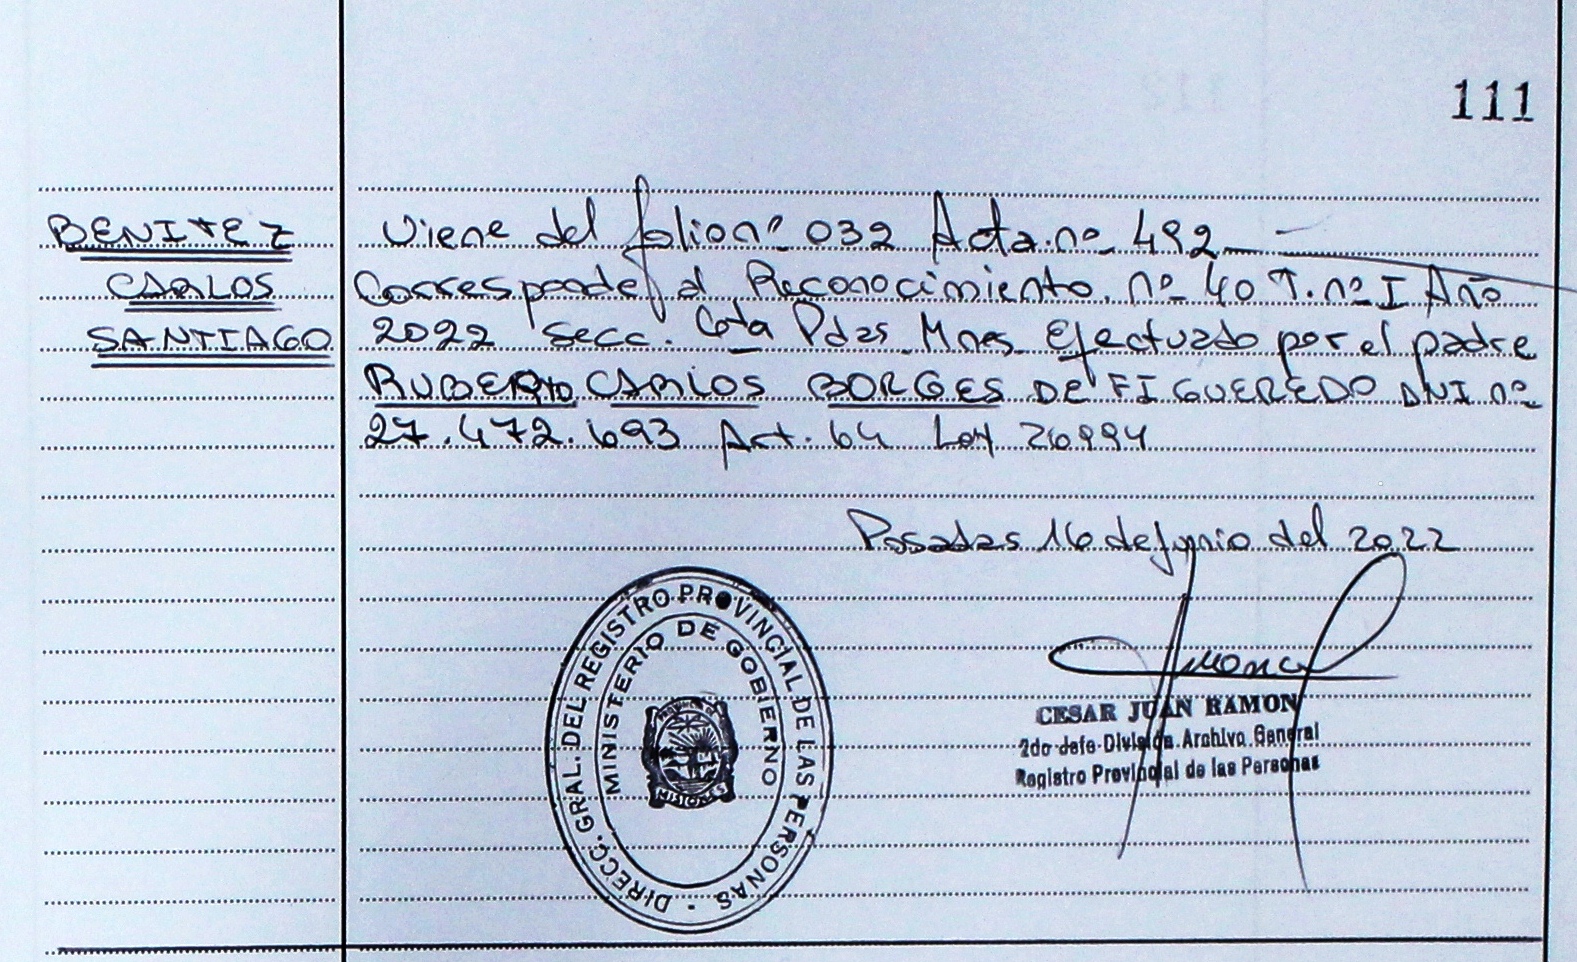 111
BENITEZ
CARLOS
SANTIAGO
Viene del folio nº 032 Acta nº 492
Corresponde al Reconocimiento. nº 40 T. nº I Año
2022 secc. Cota Pdas Mnes. Efectuado por el padre
RUBERto CARLOS BORGES DE FIGUEREDO DNI nº
27.472.693 Art. 64 Ley 26994
Posadas 16 de junio del 2022
DIRECC. GRAL. DEL REGISTRO PROVINCIAL DE LAS PERSONAS -
MINISTERIO DE GOBIERNO
MISIONES
CESAR JUAN RAMON
2do Jefe División Archivo General
Registro Provincial de las Personas